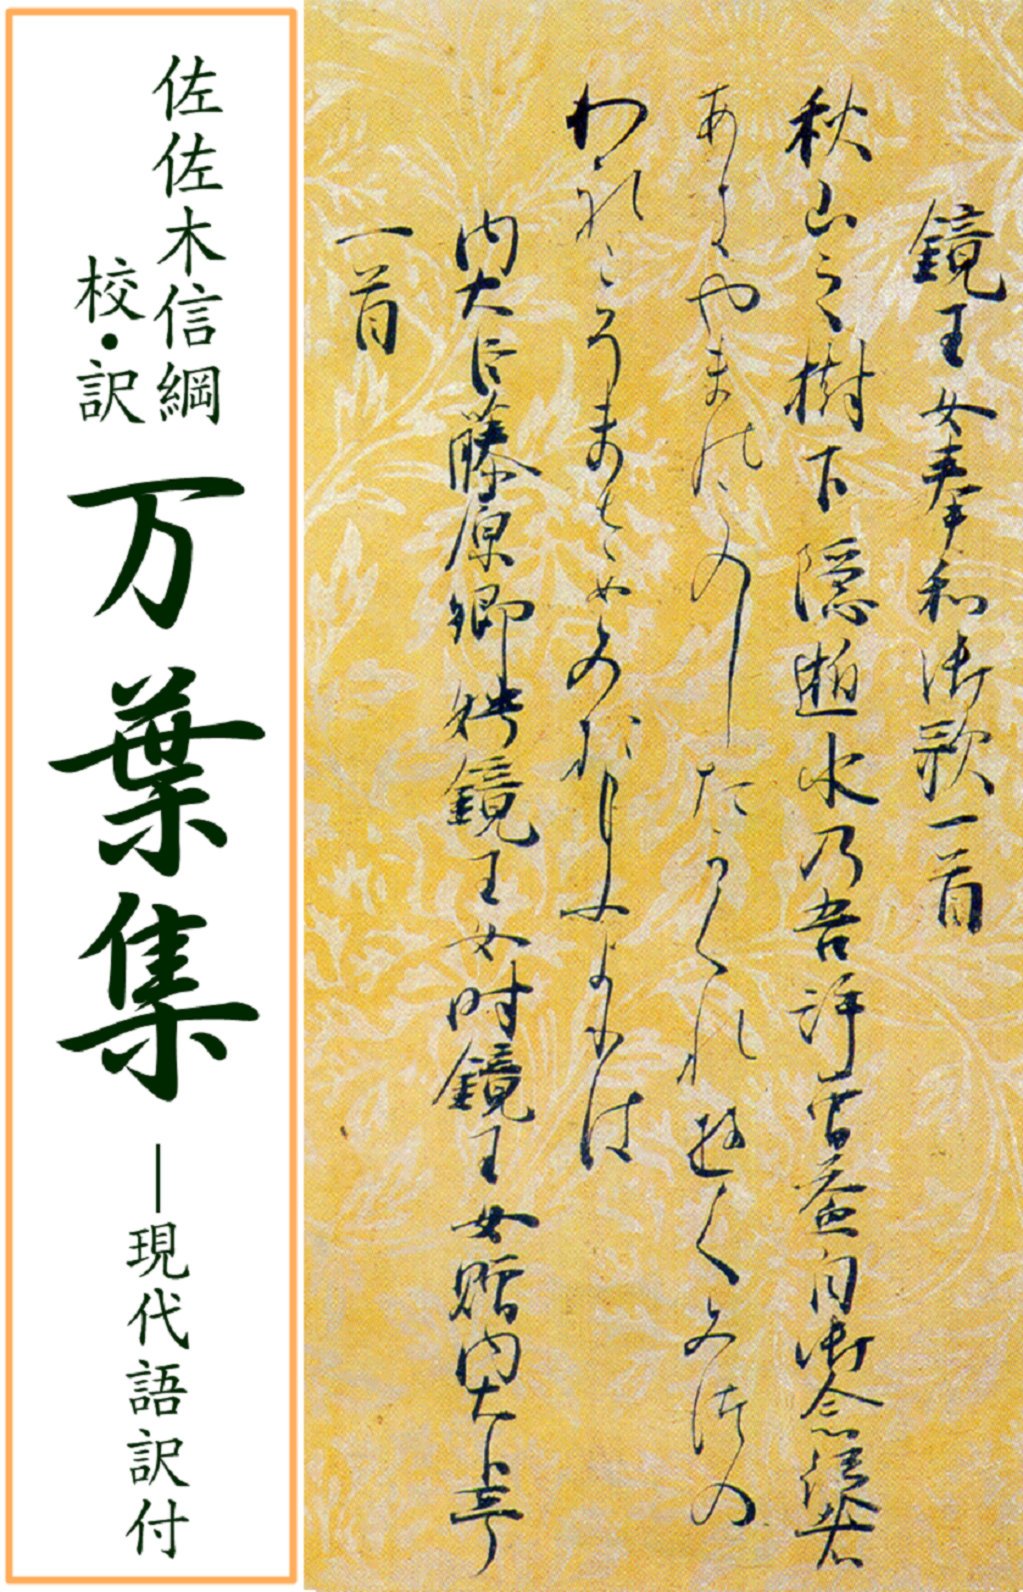 鏡王女奉和御歌一首
秋山之樹下隠逝水乃吾許曽益目御念従者
あきやまのこのしたかくれゆくみつの
われこそまさめみおもひよりは
内大臣藤原卿娉鏡王女時鏡王女贈内大臣哥
一首
佐佐木信綱
校・訳
万葉集
―現代語訳付